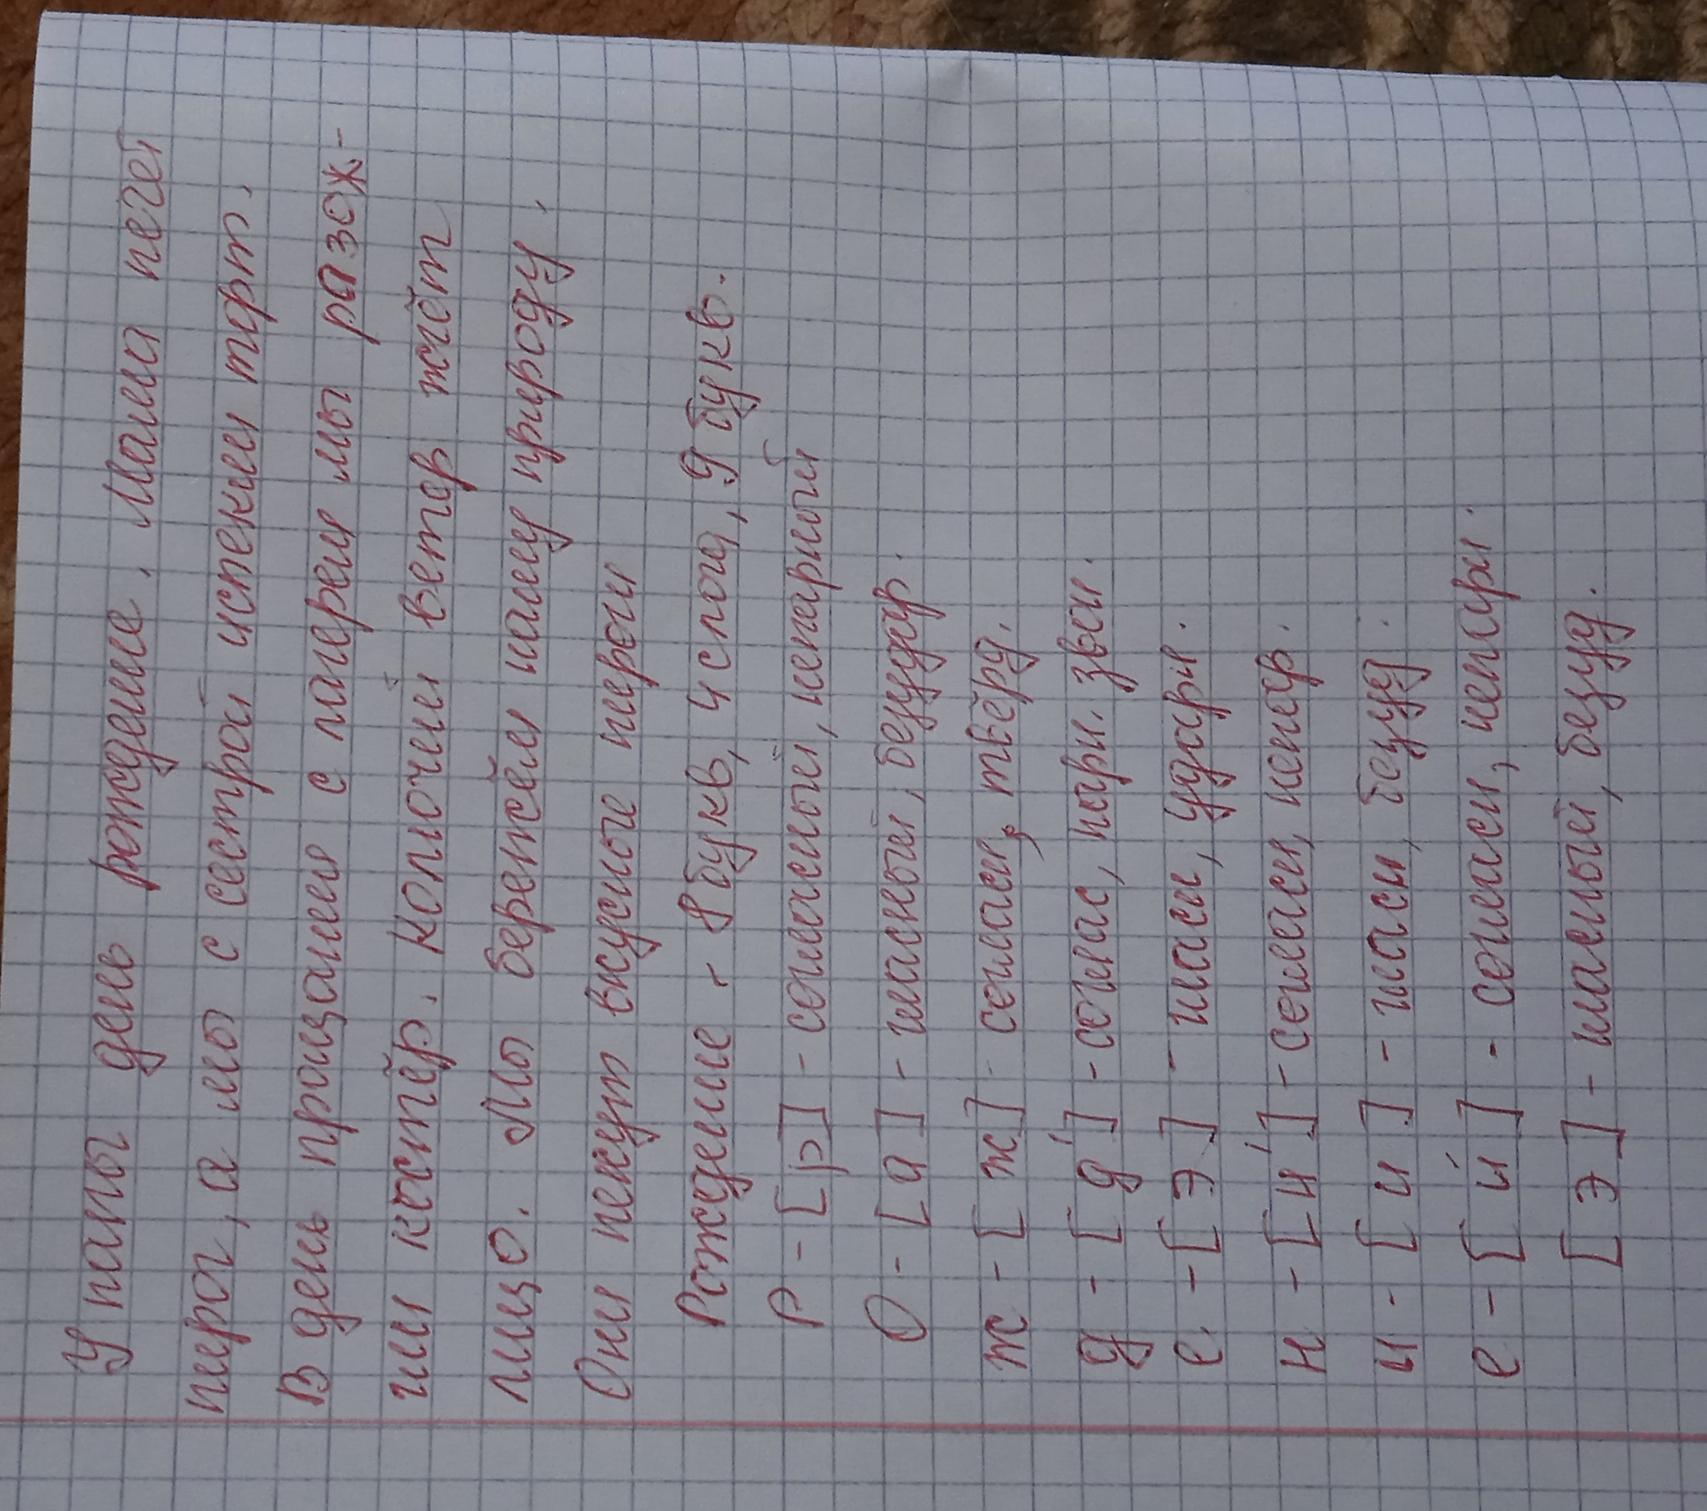 У папы день рождение. Мама печёт
пирог, а мы с сестрой испекли торт.
В день прощания с лагерем мы разож-
гли костёр. Колючей ветер жжёт
лицо. Мы бережём нашу природу.
Они пекут вкусные пироги
Рождение - 8 букв, 4 слога, 9 букв.
Р - [р] - согласный, непарный
О - [а] - гласный, безудар.
ж - [ж] - согласн, твёрд.
д - [д'] - соглас, парн. звон.
е - [э] - гласн, ударн.
н - [н'] - согласн, непар.
и - [и] - гласн, безуд.
е - [й'] - согласн, непарн.
[э] - гласный, безуд.